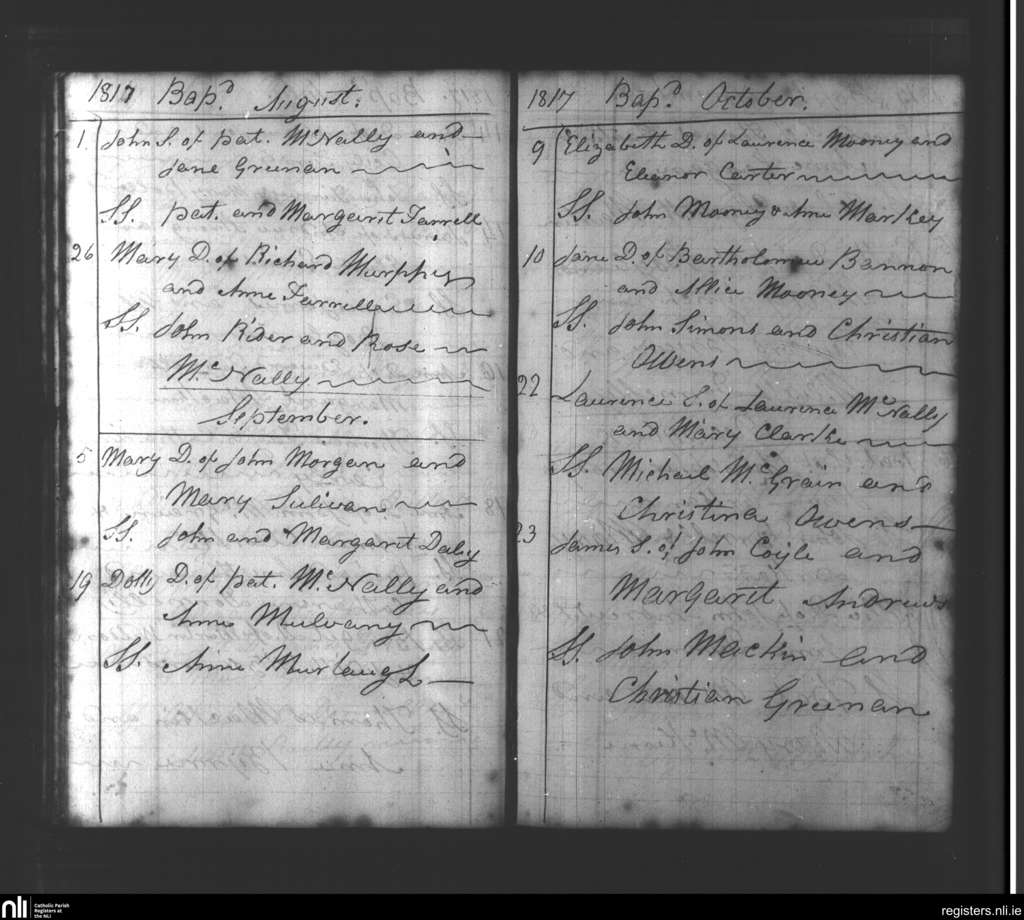 1817 Bapd. August.
1 John S. of pat. McNally and
Jane Greenan
SS. pat. and Margaret Farrell
26 Mary D. of Richard Murphy
and Anne Farrell
SS. John Rider and Rose
Mc. Nally
September.
5 Mary D. of John Morgan and
Mary Sulivan
SS. John and Margaret Daly
19 Dolly D. of pat. Mc. Nally and
Anne Mulvany
SS. Anne Murtaugh
1817 Bapd. October.
9 Elizabeth D. of Laurence Mooney and
Eleanor Carter
SS. John Mooney & Anne Markey
10 Jane D. of Bartholomew Bannon
and Allice Mooney
SS. John Simons and Christian
Owens
22 Laurence S. of Laurence McNally
and Mary Clarke
SS. Michael Mc. Grain and
Christina Owens
23 James S. of John Coyle and
Margaret Andrews
SS. John Mackin and
Christian Greenan
nli Catholic Parish
Registers at
the NLI
registers.nli.ie